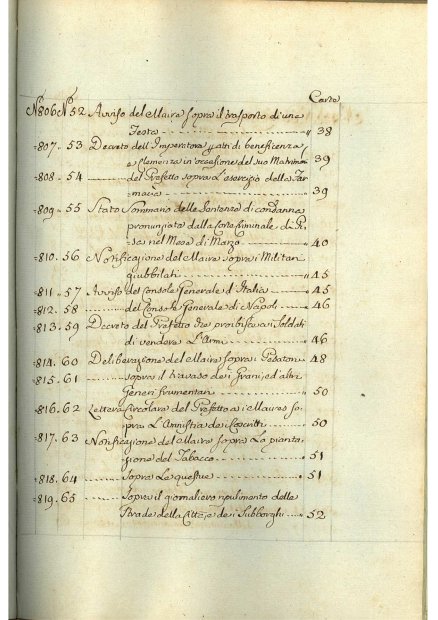 Carte
N.806 N.52 Avviso del Maire sopra il trasporto di una
Festa 38
807. 53 Decreto dell'Imperatore p atti di beneficenza
e clemenza in occasione del suo Matrimo 39
808. 54 del Prefetto sopra L'esercizio della Far
macia 39
809. 55 Stato Sommario delle Sentenze di condanna
pronunziate dalla Corte Criminale di Pi
sa nel Mese di Marzo 40
810. 56 Notificazione del Maire sopra i Militari
giubbilati 45
811. 57 Avviso del Console Generale d'Italia 45
812. 58 del Console Generale di Napoli 46
813. 59 Decreto del Prefetto che proibisce ai Soldati
di vendere L'Armi 46
814. 60 Deliberazione del Maire sopra i Pesatori 48
815. 61 sopra il travaso dei Grani, ed altri
Generi frumentari 50
816. 62 Lettera Circolare del Prefetto ai Maires so
pra L'Amnistia dei Coscritti 50
817. 63 Notificazione del Maire sopra La pianta
gione del Tabacco 51
818. 64 sopra Le questue 51
819. 65 sopra il giornaliero ripulimento delle
Strade della Città, e dei Subborghi 52